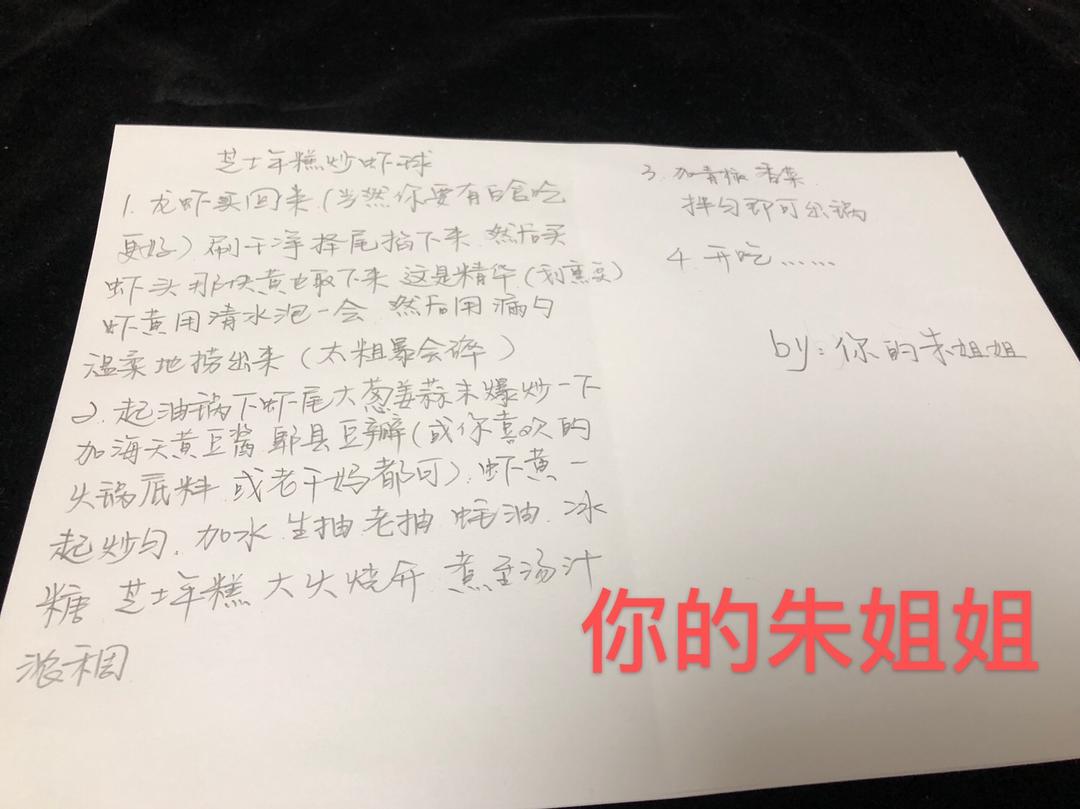 芝士年糕炒虾球
1. 龙虾买回来(当然你要有日食吃
更好)刷干净择尾掐下来 然后买
虾头那块黄也取下来 这是精华(划重点)
虾黄用清水泡一会 然后用漏勺
温柔地捞出来(太粗暴会碎)
2. 起油锅下虾尾大葱姜蒜末爆炒一下
加海天黄豆酱郫县豆瓣(或你喜欢的
火锅底料 或老干妈都可). 虾黄一
起炒匀. 加水 生抽 老抽 蚝油. 冰
糖 芝士年糕 大火烧开 煮至汤汁
浓稠
3. 加青椒 香菜
拌匀即可出锅
4. 开吃……
by: 你的朱姐姐
你的朱姐姐